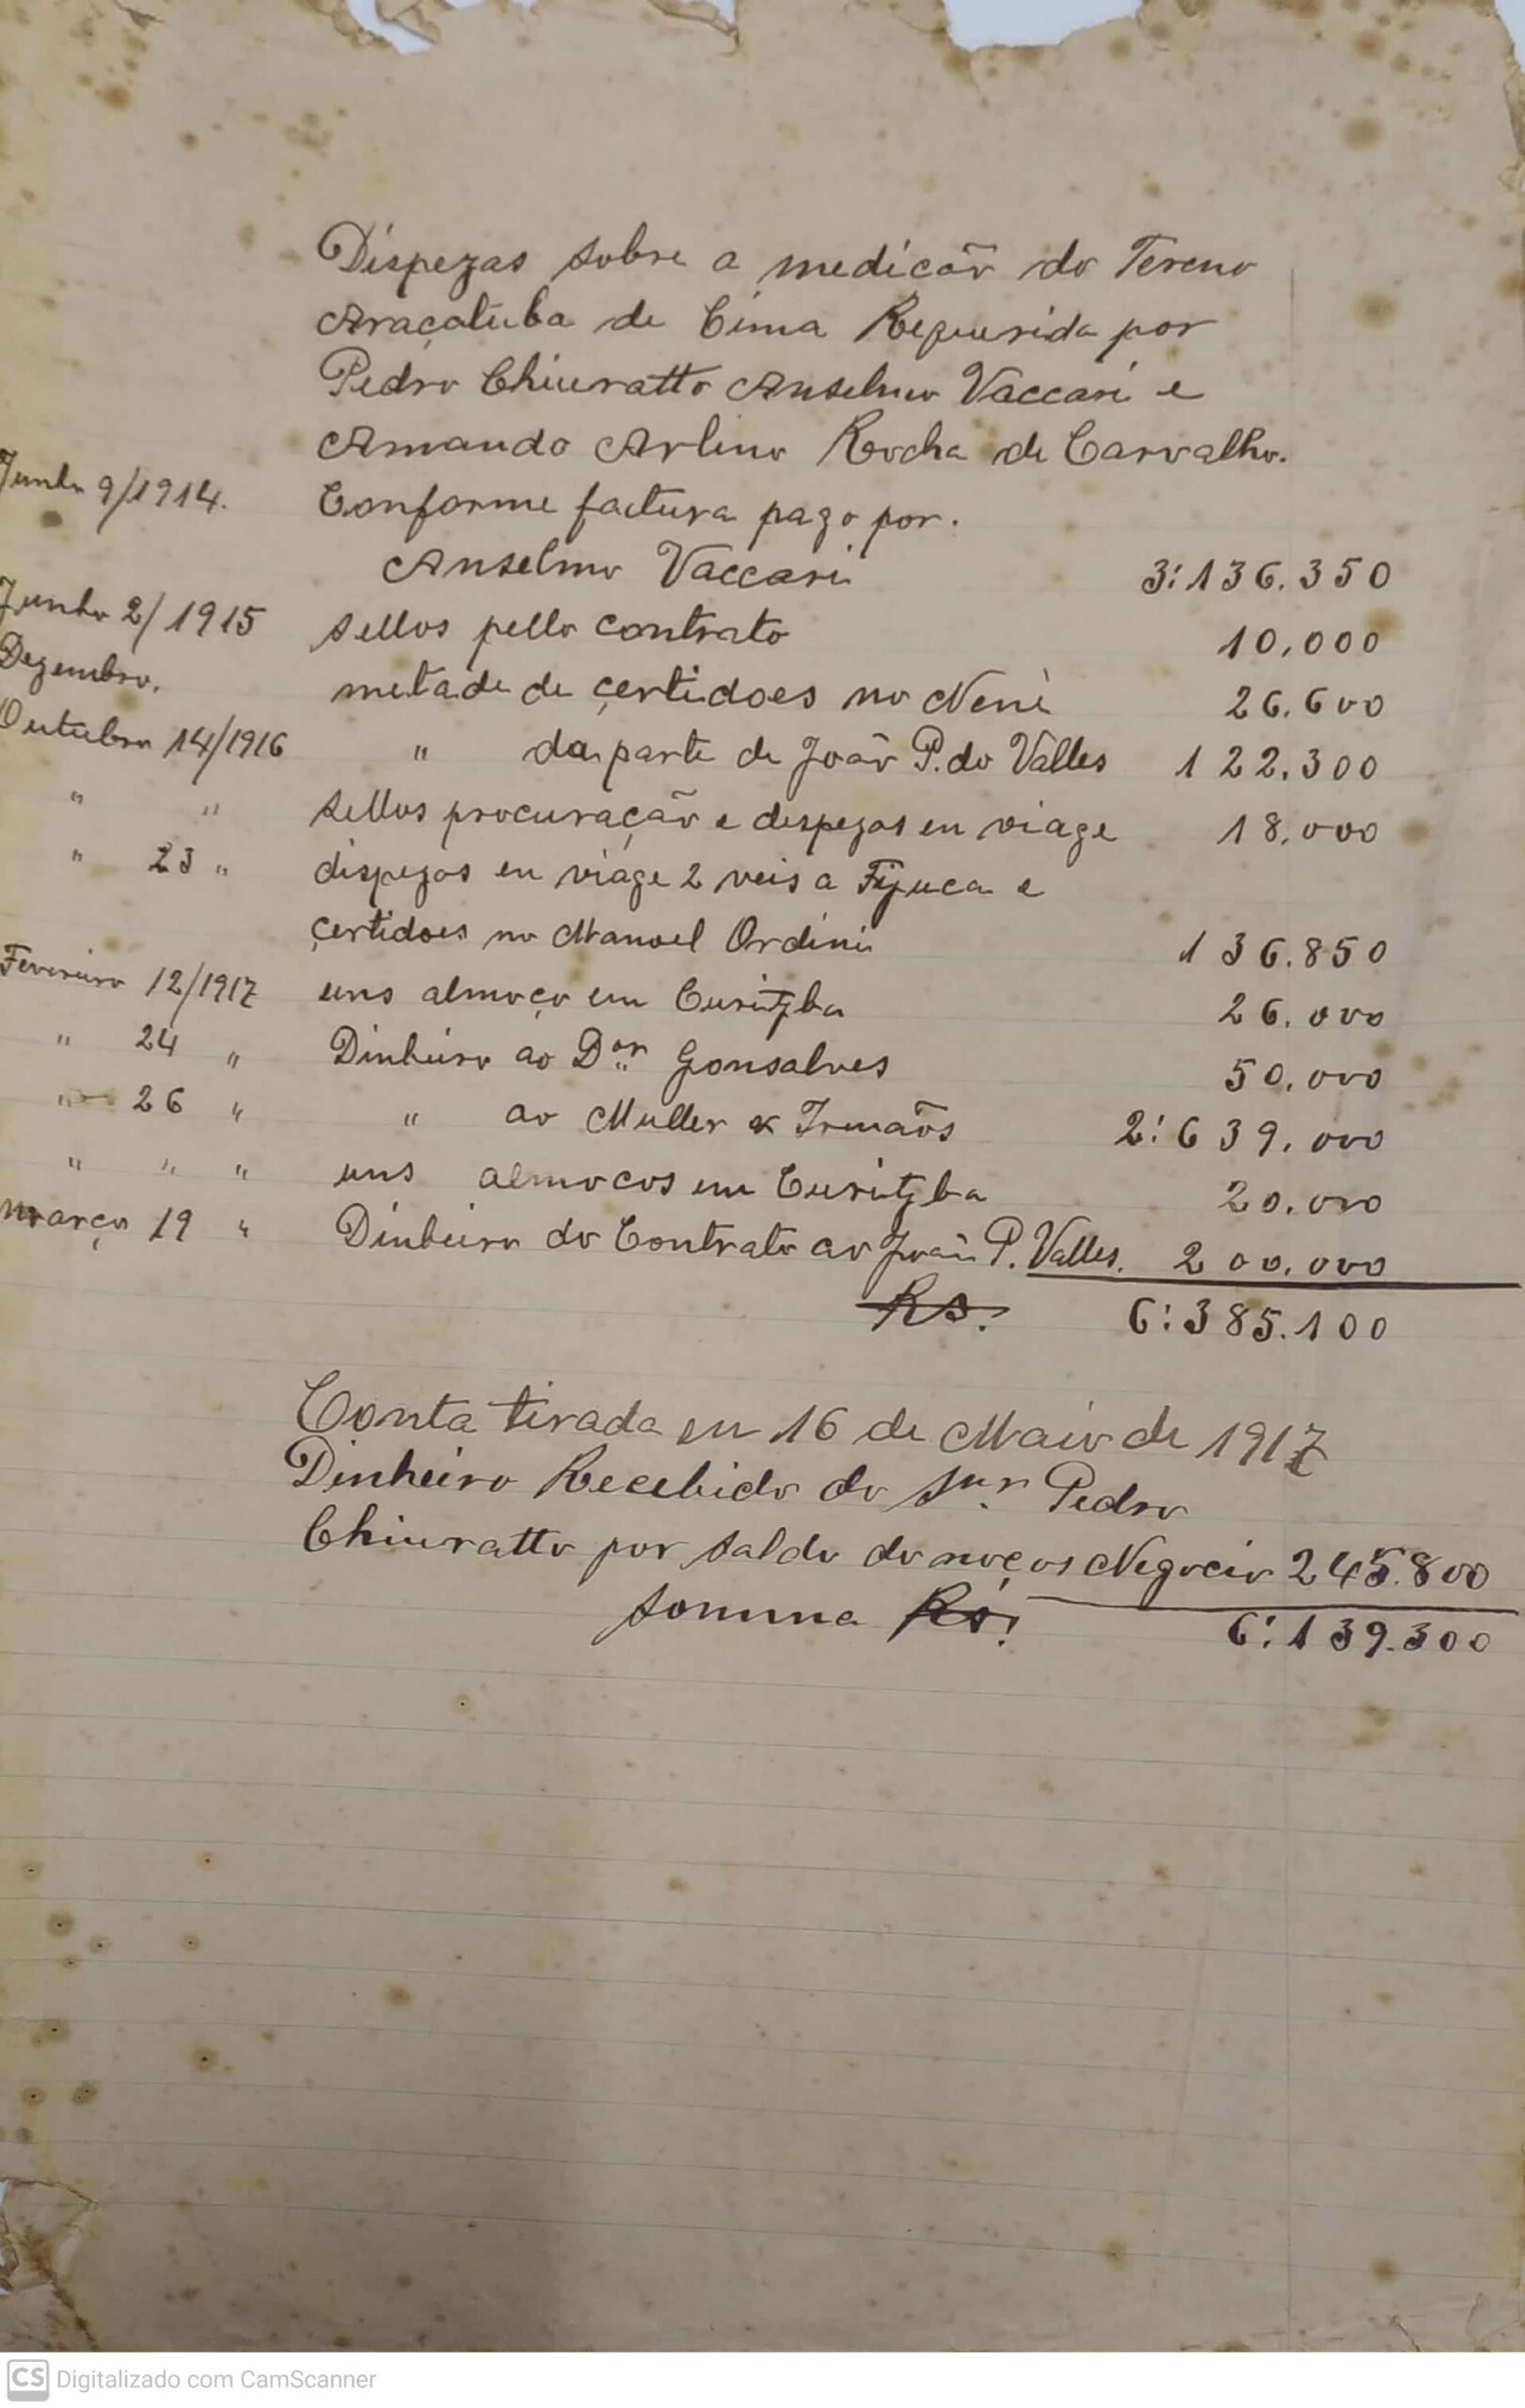 Dispezas sobre a medicão do Tereno
Araçatuba de Cima Requerida por
Pedro Chiuratto Anselmo Vaccari e
Amando Arlino Rocha de Carvalho.
Junho 9/1914. Conforme factura pago por.
Anselmo Vaccari 3:136.350
Junho 2/1915 sellos pello contrato 10,000
Dezembro. metade de certidoes no Nenê 26.600
Outubro 14/1916 " da parte de João P. do Valles 122.300
" " sellos procuração e despezas en viage 18,000
" 23 " dispezas en viage 2 veis a Tijuca e
certidoes no Manoel Ordini 136.850
Fevereiro 12/1917 uns almoço em Curityba 26.000
" 24 " Dinheiro ao Dor Gonsalves 50.000
" 26 " " ao Muller & Irmãos 2:639,000
" " " uns almocos em Curityba 20.000
março 19 " Dinheiro do Contrato ao João P. Valles. 200.000
Rs. 6:385.100
Conta tirada en 16 de Maio de 1917
Dinheiro Recebido do Snr Pedro
Chiuratto por saldo do Negocio 245.800
somma Rs! 6:139.300
CS Digitalizado com CamScanner